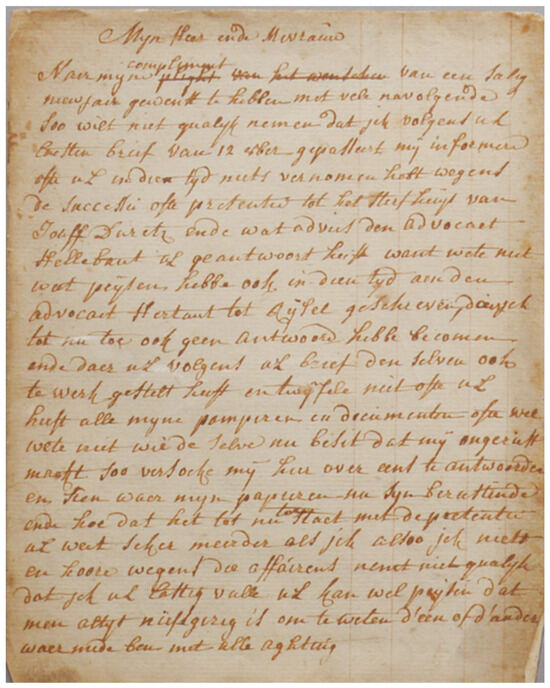 Myn Heer ende Mevrauw
compliment
Naer myne plight van het wenschen van een salig
niew jair gewenst te hebben met vele navolgende
soo wilt niet qualyk nemen dat jek volgens ul
lesten brief van 12 xber gepasseert my informere
ofte ul in dien tyd niets vernomen hebt wegens
de successie ofte pretentie tot het sterfhuys van
Joaff ende wat advies den advocaet
Hellebaut ul geantwoort heeft want wete niet
wat peysen hebbe ook in dien tyd aen den
advocaet Hertaut tot Ryssel geschreven
tot nu toe ook geen antwoord hebbe becomen
ende daer ul volgens ul brief den selven ook
te werk gestelt heeft en twyfele niet ofte ul
heeft alle myne pampieren en documenten ofte wel
wete niet wie de selve nu besit dat my ongerust
maekt soo versoeke my hier over eens te antwoorden
en sien waer myn papieren nu syn berustende
ende hoe dat het tot nu toe staet met de pretentie
ul weet seker meerder als jek alsoo jek niets
en hoore wegens die affairens nemt niet qualyk
dat jek ul lastig valle ul kan wel peysen dat
men altyt niefsgirig is om te weten d'een of d'ander
waer mede ben met alle aghting